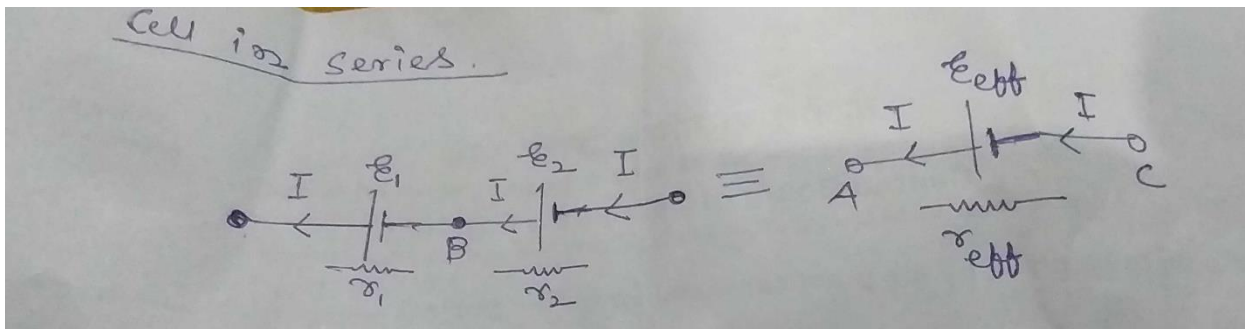 Cell in series.
I ε₁ I ε₂ I
B
r₁ r₂
≡
I ε_eff I
A C
r_eff